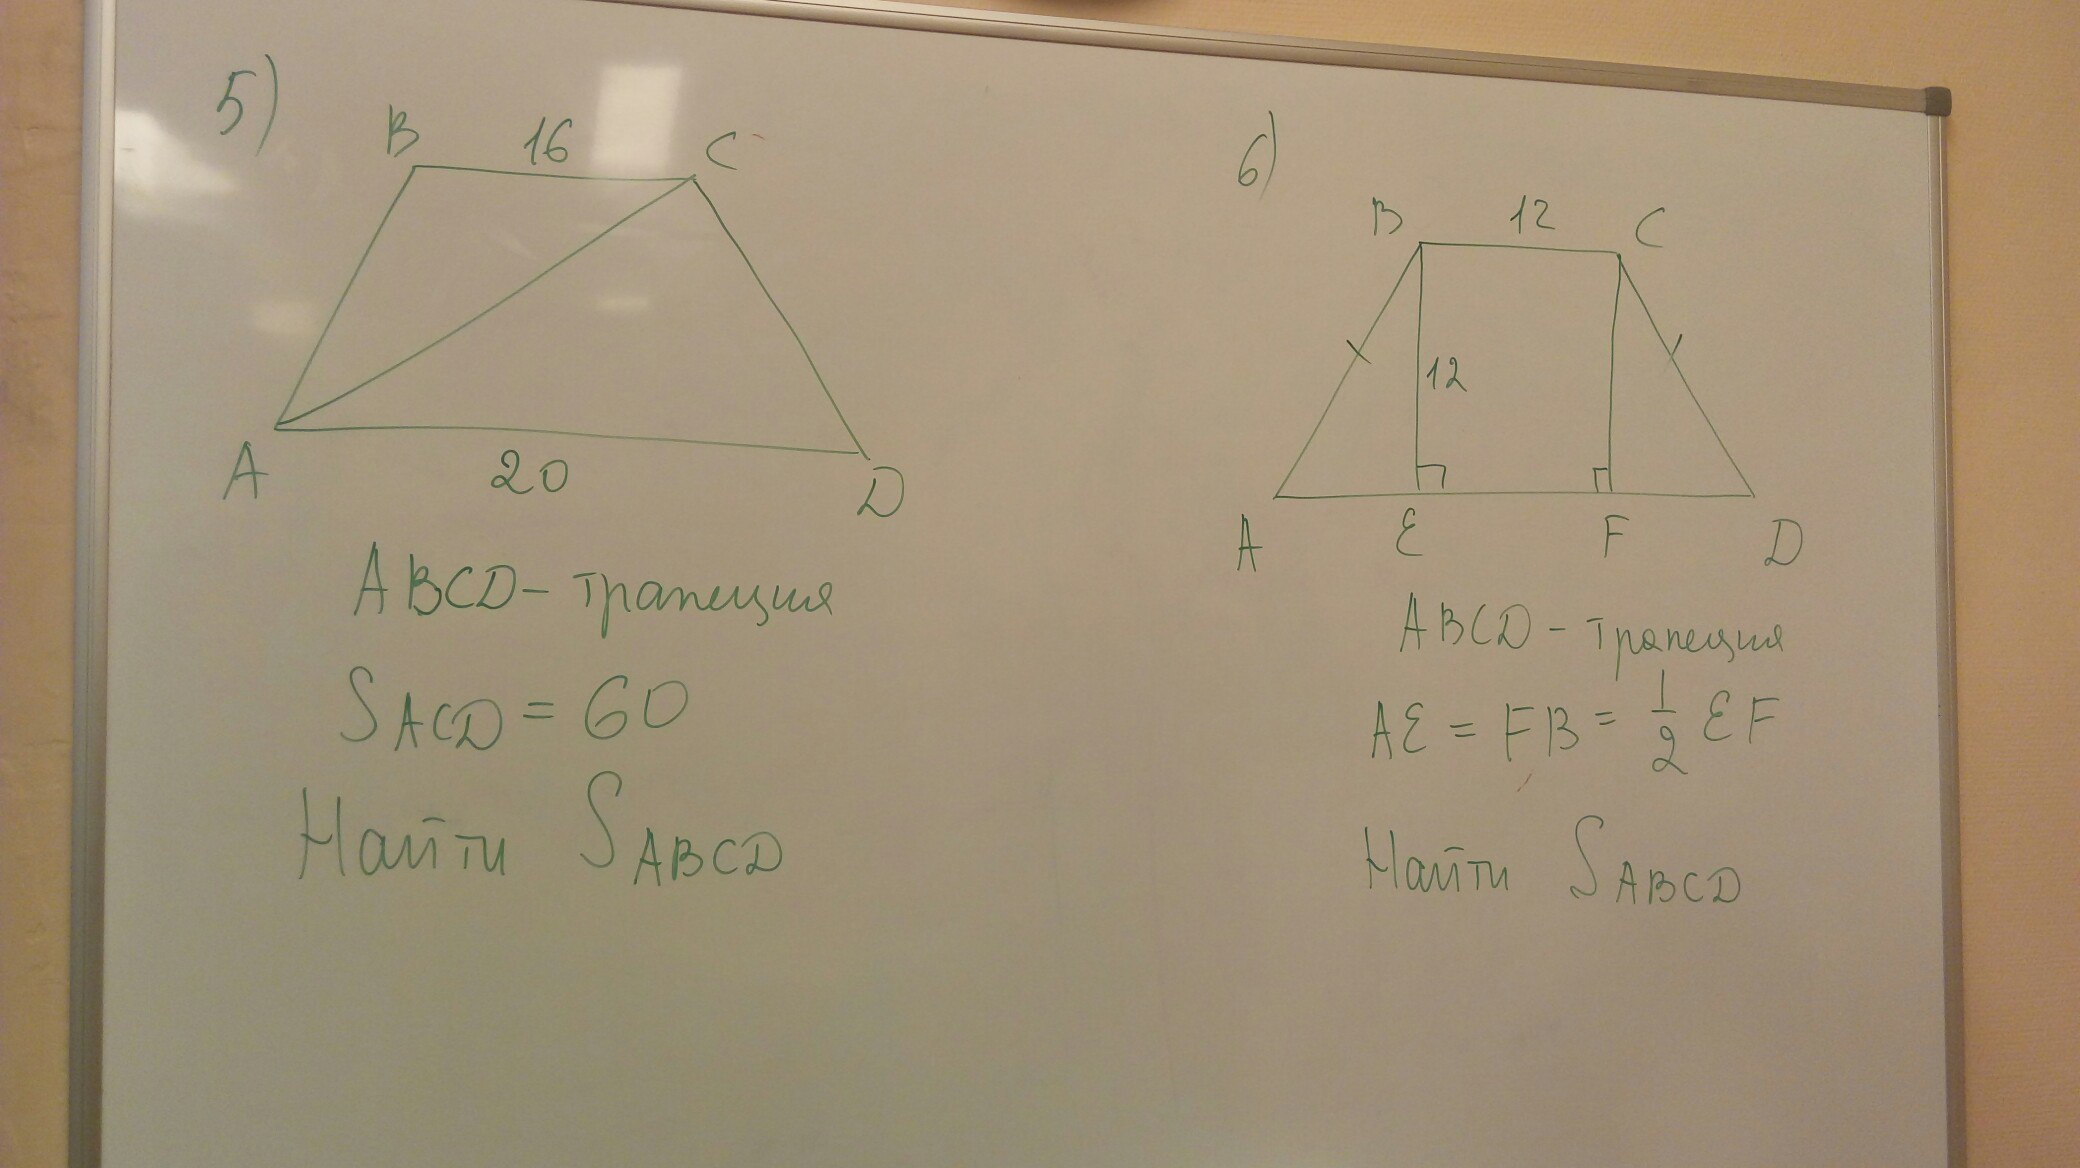 5)
B 16 C
A 20 D
ABCD - трапеция
S ACD = 60
Найти S ABCD
6)
B 12 C
12
A E F D
ABCD - трапеция
AE = FB = 1/2 EF
Найти S ABCD